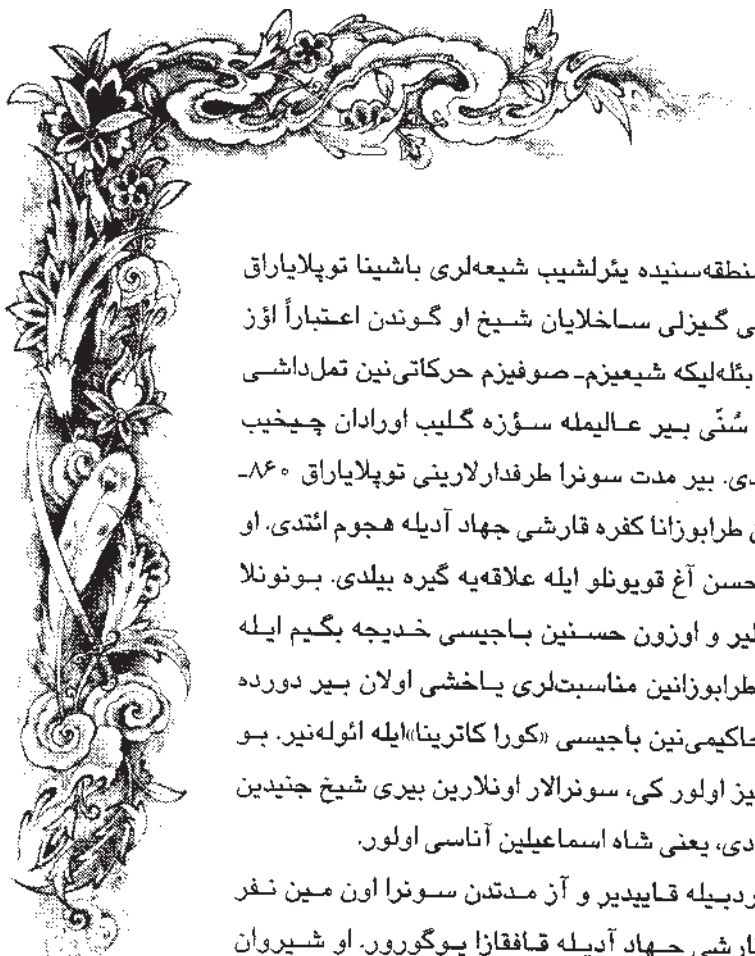 منطقه‌سنیده یئرلشیب شیعه‌لری باشینا توپلایاراق
گیزلی ساخلایان شیخ او گوندن اعتباراً اؤز
بئله‌لیکه شیعیزم ـ صوفیزم حرکاتی‌نین تمل‌داشی
سُنّی بیر عالیمله سؤزه گلیب اورادان چیخیب
دی. بیر مدت سونرا طرفدارلارینی توپلایاراق ۸۶۰ـ
طرابوزانا کفره قارشی جهاد آدیله هجوم ائتدی. او
حسن آغ قویونلو ایله علاقه‌یه گیره بیلدی. بونونلا
و اوزون حسنین باجیسی خدیجه بگیم ایله
طرابوزانین مناسبت‌لری یاخشی اولان بیر دورده
حاکیمی‌نین باجیسی «کورا کاترینا»ایله ائوله‌نیر. بو
اولور کی، سونرالار اونلارین بیری شیخ جنیدین
دی، یعنی شاه اسماعیلین آناسی اولور.
ردبیله قاییدیر و آز مدتدن سونرا اون مین نفر
ارشی جهاد آدیله قافقازا یوگورور. او شیروان